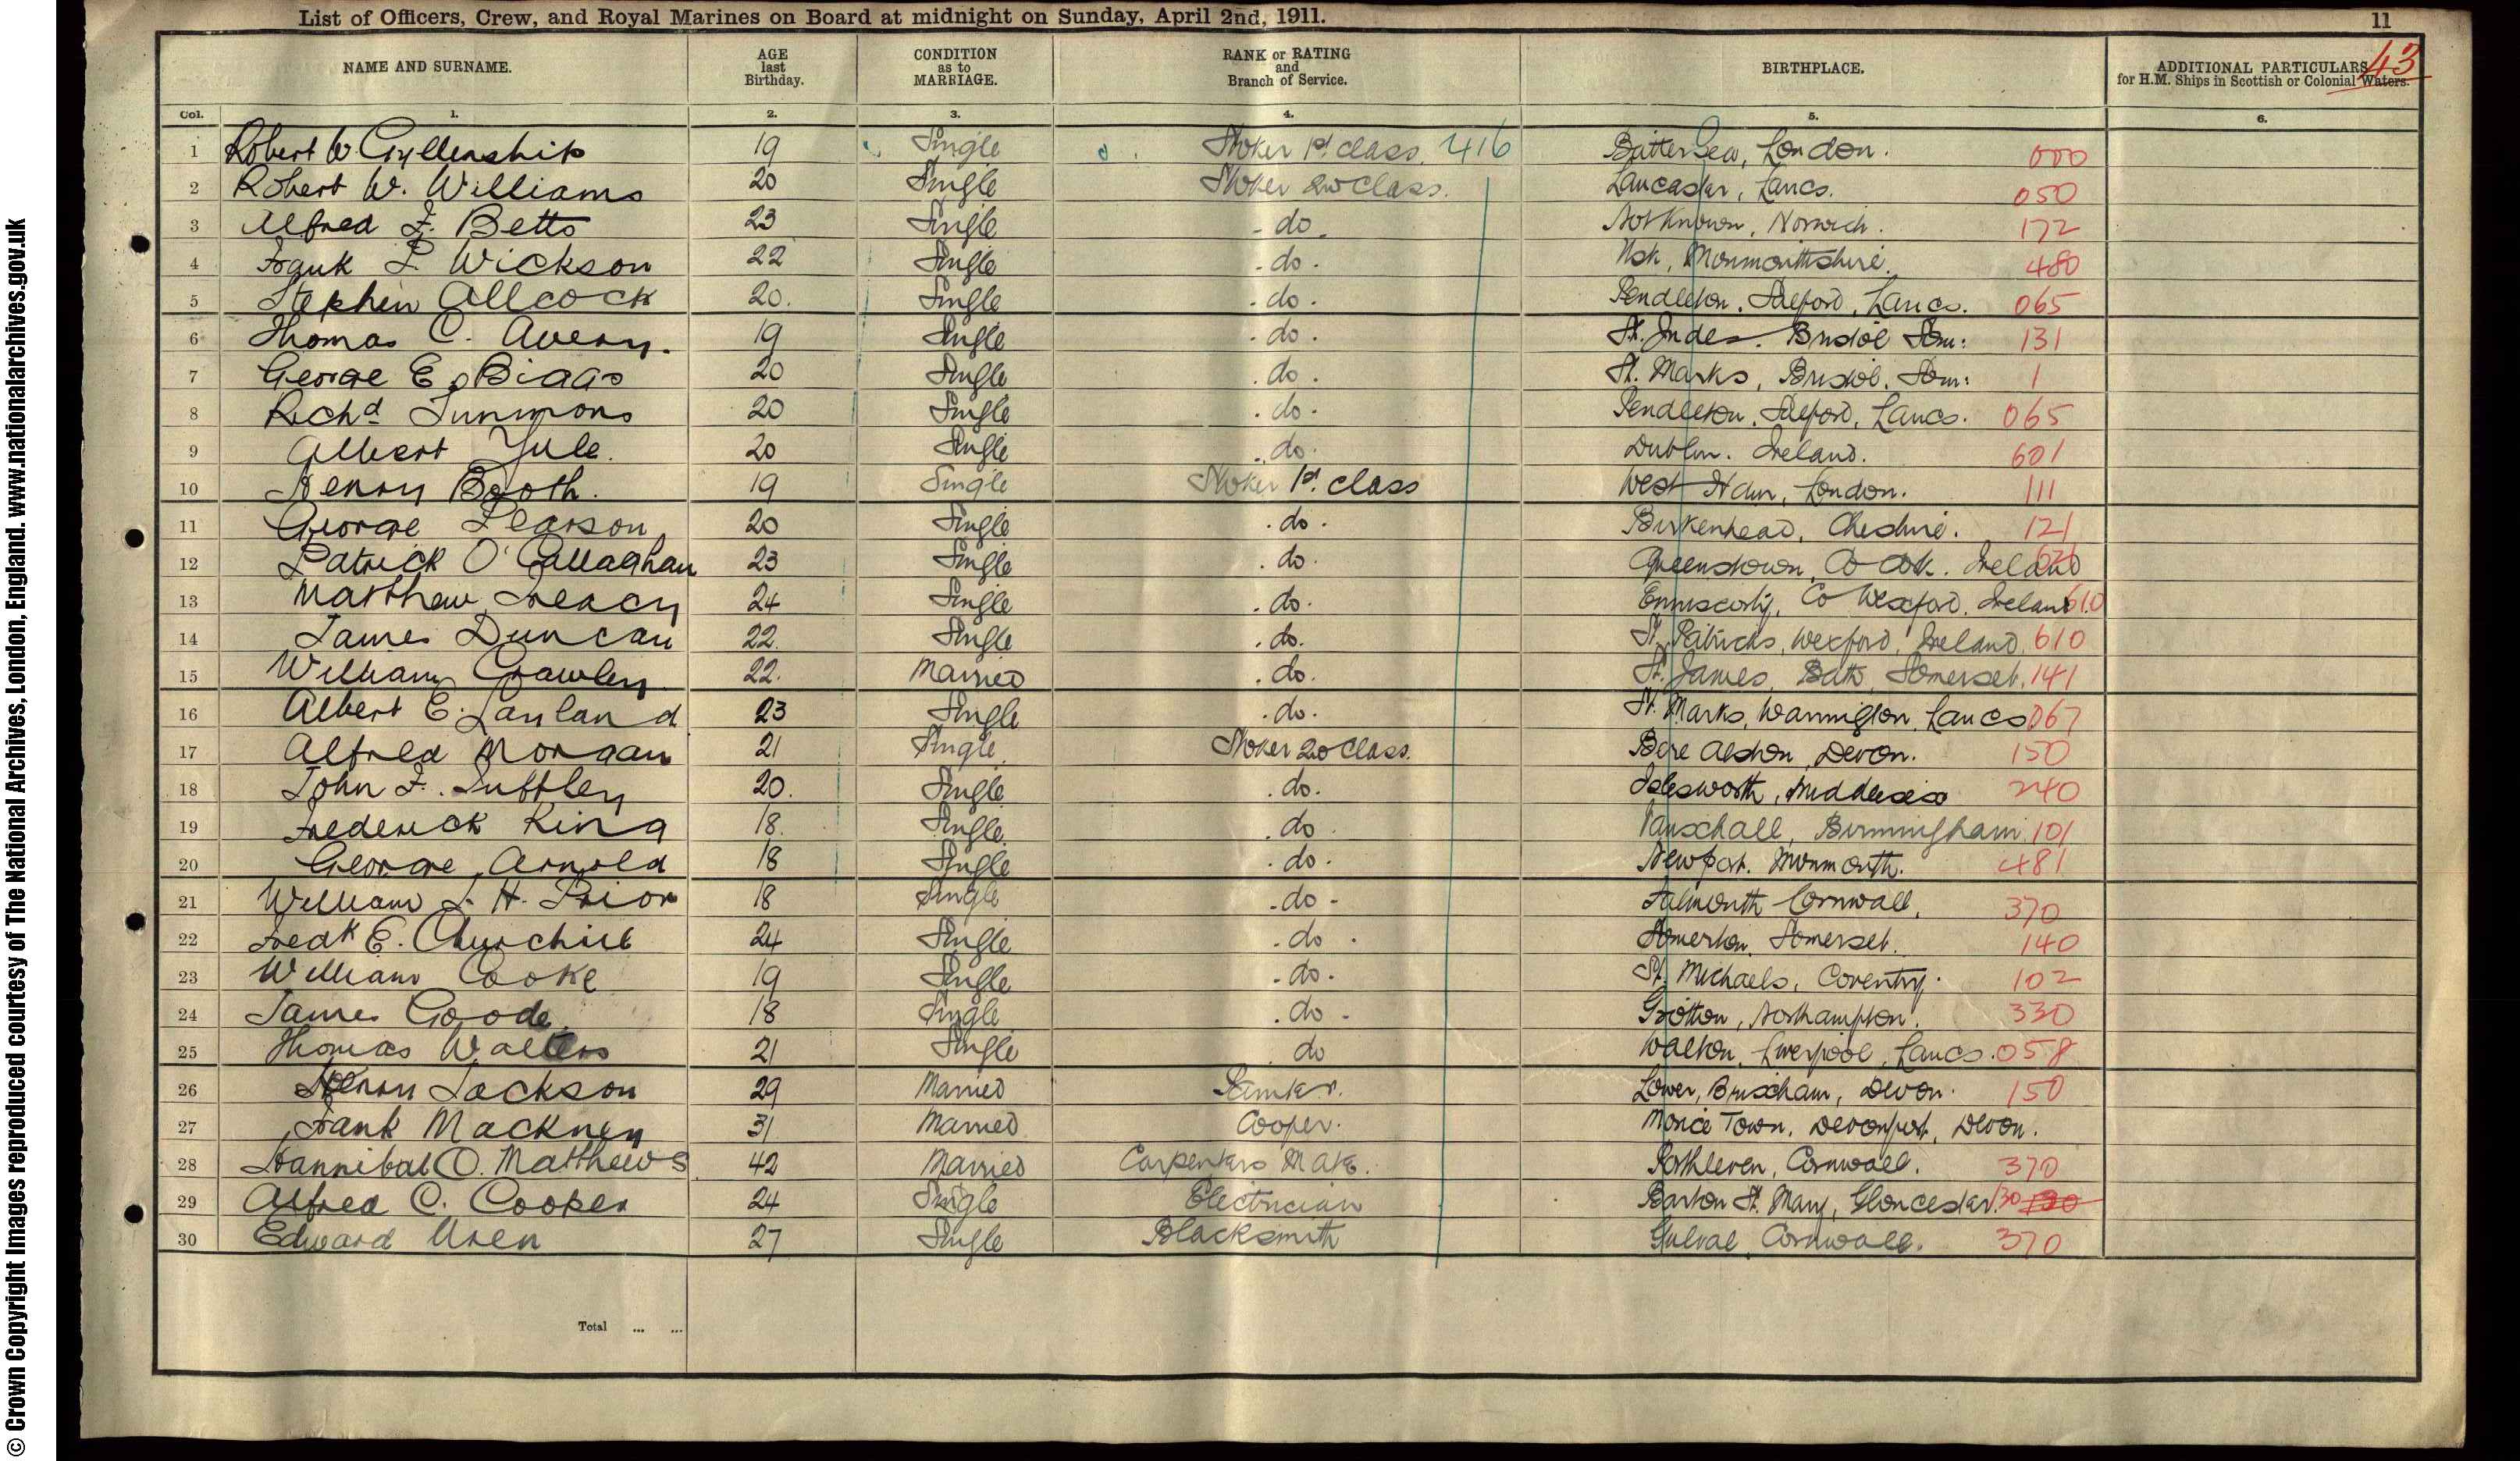 List of Officers, Crew, and Royal Marines on Board at midnight on Sunday, April 2nd, 1911. 11
43
NAME AND SURNAME. AGE last Birthday. CONDITION as to MARRIAGE. RANK or RATING and Branch of Service. BIRTHPLACE. ADDITIONAL PARTICULARS for H.M. Ships in Scottish or Colonial Waters.
Col. 1. 2. 3. 4. 5. 6.
1 Robert W. Gyllenship 19 Single Stoker 1st. class. 416 Battersea, London. 000
2 Robert W. Williams 20 Single Stoker 2nd Class. Lancaster, Lancs. 050
3 Alfred F. Betts 23 Single - do - Not Known, Norwich. 172
4 Frank P. Wickson 22 Single - do - Usk, Monmouthshire. 480
5 Stephen Allcock 20. Single - do - Pendleton, Salford, Lancs. 065
6 Thomas C. Avery. 19 Single - do - St. Judes. Bristol Som: 131
7 George E. Biggs 20 Single - do - St. Marks, Bristol, Som: 1
8 Richd Simmons 20 Single - do - Pendleton, Salford, Lancs. 065
9 Albert Yule. 20 Single - do - Dublin. Ireland. 601
10 Henry Booth. 19 Single Stoker 1st. class West Ham, London. 111
11 George Pearson 20 Single . do . Birkenhead, Cheshire. 121
12 Patrick O'Callaghan 23 Single . do . Queenstown, Co Cork. Ireland
13 Matthew Treacy 24 Single . do . Enniscorthy, Co Wexford. Ireland 610
14 James Duncan 22. Single . do . St. Patricks, Wexford, Ireland. 610
15 William Crawley 22. Married . do . St. James, Bath, Somerset. 141
16 Albert E. Layland 23 Single . do . St. Marks, Warrington, Lancs. 067
17 Alfred Morgan 21 Single Stoker 2nd Class. Bere Alston, Devon. 150
18 John F. Luffley 20. Single . do . Islesworth, Middlesex 240
19 Frederick King 18. Single . do . Vauxhall, Birmingham. 101
20 George Arnold 18 Single . do . Newport. Monmouth. 481
21 William J. H. Prior 18 Single - do - Falmouth Cornwall. 370
22 Fredk E. Churchill 24 Single - do - Somerton, Somerset. 140
23 William Cooke 19 Single - do - St. Michaels, Coventry. 102
24 James Goode 18 Single . do - Northampton. 330
25 Thomas Walters 21 Single do Walton, Liverpool, Lancs. 058
26 Henry Jackson 29 Married Painter. Lower, Brixham, Devon. 150
27 Frank Mackney 31 Married Cooper. Morice Town, Devonport, Devon.
28 Hannibal O. Matthews 42 Married Carpenters Mate. Porthleven, Cornwall. 370
29 Alfred C. Cooper 24 Single Electrician Barton St. Mary, Gloucester. 130
30 Edward Uren 27 Single Blacksmith Gulval Cornwall. 370
Total ... ...
© Crown Copyright Images reproduced courtesy of The National Archives, London, England. www.nationalarchives.gov.uk